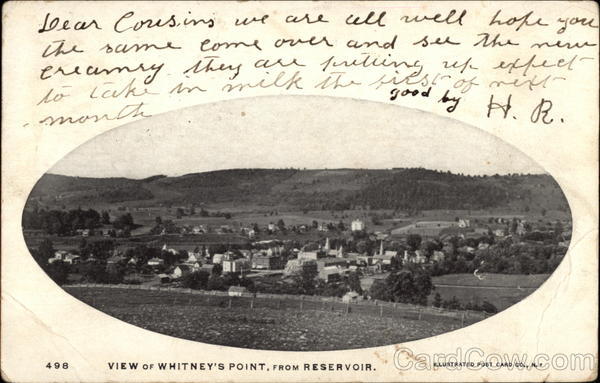 Dear Cousins we are all well hope you
the same come over and see the new
creamry they are putting up expect
to take in milk the first of next
month good by H. R.
498 VIEW OF WHITNEY'S POINT, FROM RESERVOIR. ILLUSTRATED POST CARD CO., N.Y.
CardCow.com